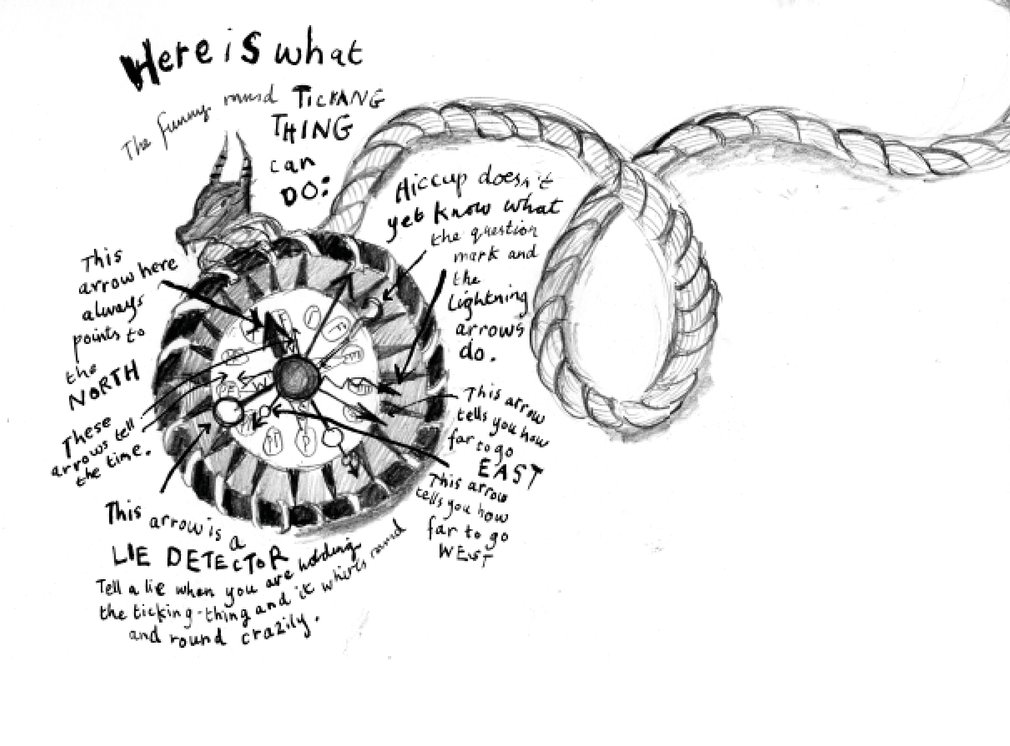 Here is what
The funny round TICKING
THING
can
DO:
Hiccup doesn't
yet know what
the question
mark and
the
Lightning
arrows
do.
This
arrow here
always
points to
the
NORTH
These
arrows tell
the time.
This arrow
tells you how
far to go
EAST
This arrow
tells you how
far to go
WEST
This arrow is a
LIE DETECTOR
Tell a lie when you are holding
the ticking-thing and it whirls round
and round crazily.
W